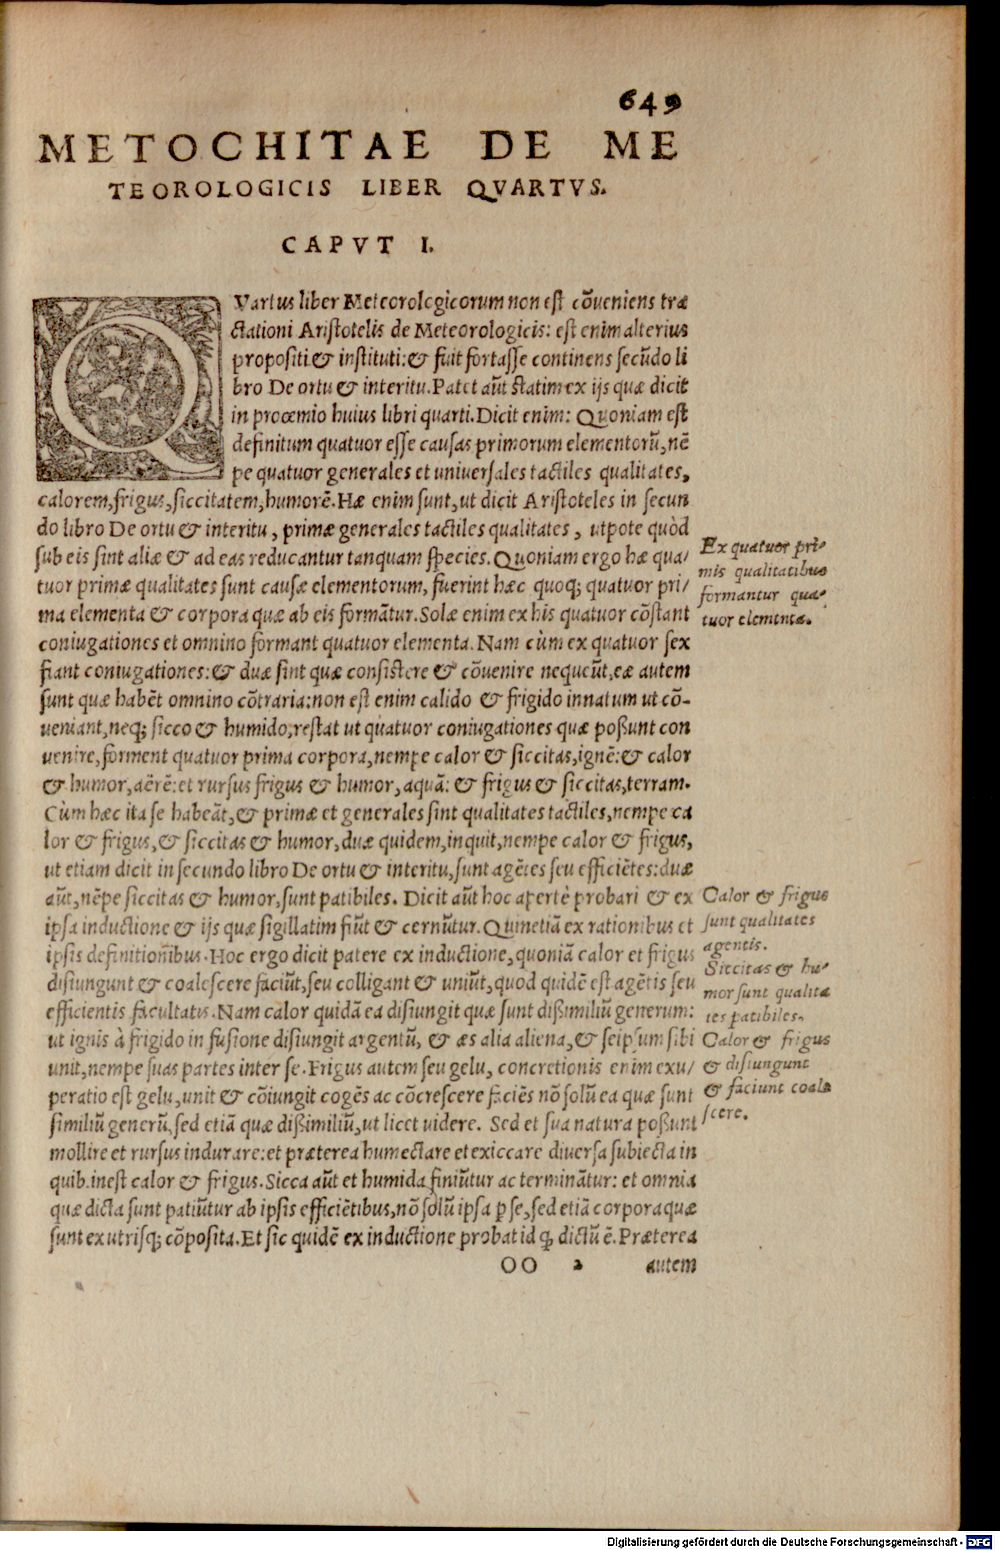 649
METOCHITAE DE ME
TEOROLOGICIS LIBER QVARTVS.
CAPVT I.
QVartus liber Meteorologicorum non est cōueniens træ
ctationi Aristotelis de Meteorologicis: est enim alterius
propositi & instituti: & fuit fortasse continens secūdo li
bro De ortu & interitu. Patet aūt statim ex ijs quæ dicit
in proœmio huius libri quarti. Dicit enim: Quoniam est
definitum quatuor esse causas primorum elementorū, nē
pe quatuor generales et uniuersales tactiles qualitates,
calorem, frigus, siccitatem, humorē. Hæ enim sunt, ut dicit Aristoteles in secun
do libro De ortu & interitu, primæ generales tactiles qualitates, utpote quòd
sub eis sint aliæ & ad eas reducantur tanquam species. Quoniam ergo hæ qua/
tuor primæ qualitates sunt causæ elementorum, fuerint hæc quoq; quatuor pri/
ma elementa & corpora quæ ab eis formātur. Solæ enim ex his quatuor cōstant
coniugationes et omnino formant quatuor elementa. Nam cùm ex quatuor sex
fiant coniugationes: & duæ sint quæ consistere & cōuenire nequeūt, eæ autem
sunt quæ habēt omnino cōtraria: non est enim calido & frigido innatum ut cō-
ueniant, neq; sicco & humido, restat ut quatuor coniugationes quæ possunt con
uenire, forment quatuor prima corpora, nempe calor & siccitas, ignē: & calor
& humor, aërē: et rursus frigus & humor, aquā: & frigus & siccitas, terram.
Cùm hæc ita se habeāt, & primæ et generales sint qualitates tactiles, nempe ca
lor & frigus, & siccitas & humor, duæ quidem, inquit, nempe calor & frigus,
ut etiam dicit in secundo libro De ortu & interitu, sunt agētes seu efficiētes: duæ
aūt, nēpe siccitas & humor, sunt patibiles. Dicit aūt hoc apertè probari & ex
ipsa inductione & ijs quæ sigillatim fiūt & cernūtur. Quinetiā ex rationibus et
ipsis definitionibus. Hoc ergo dicit patere ex inductione, quoniā calor et frigus
disiungunt & coalescere faciūt, seu colligant & uniūt, quod quidē est agētis seu
efficientis facultatis. Nam calor quidā ea disiungit quæ sunt dissimiliū generum:
ut ignis à frigido in fusione disiungit argentū, & æs alia aliena, & seipsum sibi
unit, nempe suas partes inter se. Frigus autem seu gelu, concretionis enim exu/
peratio est gelu, unit & cōiungit cogēs ac cōcrescere faciēs nō solū ea quæ sunt
similiū generū, sed etiā quæ dissimiliū, ut licet uidere. Sed et sua natura possunt
mollire et rursus indurare: et præterea humectare et exiccare diuersa subiecta in
quib. inest calor & frigus. Sicca aūt et humida finiūtur ac terminātur: et omnia
quæ dicta sunt patiūtur ab ipsis efficiētibus, nō solū ipsa p se, sed etiā corpora quæ
sunt ex utrisq; cōposita. Et sic quidē ex inductione probat id qđ dictū ē. Præterea
OO 2 autem
Ex quatuor pri-
mis qualitatibus
formantur qua-
tuor elementa.
Calor & frigus
sunt qualitates
agentis.
Siccitas & hu-
mor sunt qualita
tes patibiles.
Calor & frigus
& disiungunt
& faciunt coale
scere.
Digitalisierung gefördert durch die Deutsche Forschungsgemeinschaft - DFG